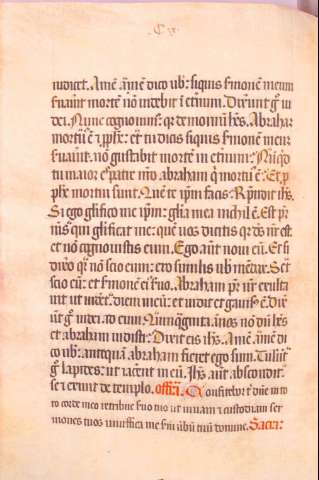 C v
iudicet. Amē. amē dico vb̄: siquis s̄monē meum
s̄uauit mortē nō videbit ī et̄num. Dix̄unt g̊ iu
dei. Nunc cognouim⁹. qr̄ demoniū hēs. Abrahā
mortu⁹ ē ⁊ ꝓph̄e: et tu dicis siquis s̄monē meū
s̄uauit. nō gustabit mortē in et̄num: Nūqd
tu maior es patre nr̄o. abraham q̄ mortu⁹ ē: Et ꝓ
ph̄e mortui sunt. Quē te ip̄m facis: Rn̄dit ih̄s.
Si ego gl̄ifico me ip̄m: gl̄ia mea nichil ē. Est pr̄
me⁹ qui gl̄ificat me: quē uos dicitis qr̄ ds̄ nr̄ est
et nō cognouistis eum. Ego aūt noui eū. Et si
dix̄o qr̄ nō scio eum: ero similis vb̄ mēdax. Set
scio eū: et s̄monē ei⁹ s̄uo. Abraham pr̄ nr̄ exulta
uit ut uidēt. diem meū: et uidit et gauis⁹ ē. Dix̄
unt g̊ iudei. ad eum. Quīnq̄ginta. ānos nō dū hēs
et abraham uidisti: Dixit eis ih̄s. Amē. amē di
co vb̄: anteq̄ua abraham fieret ego sum. Tulūt
g̊ lapides: ut iacent in eū: Ih̄s aūt abscondit
se ⁊ exiuit de templo. offr̄a. Confitebor t̄ dn̄e in to
to corde meo retribue s̄uo tuo ut uiuam ⁊ custodiam ser
mones tuos uiuifica me s̄m ūbū tuū domine. Sacra: